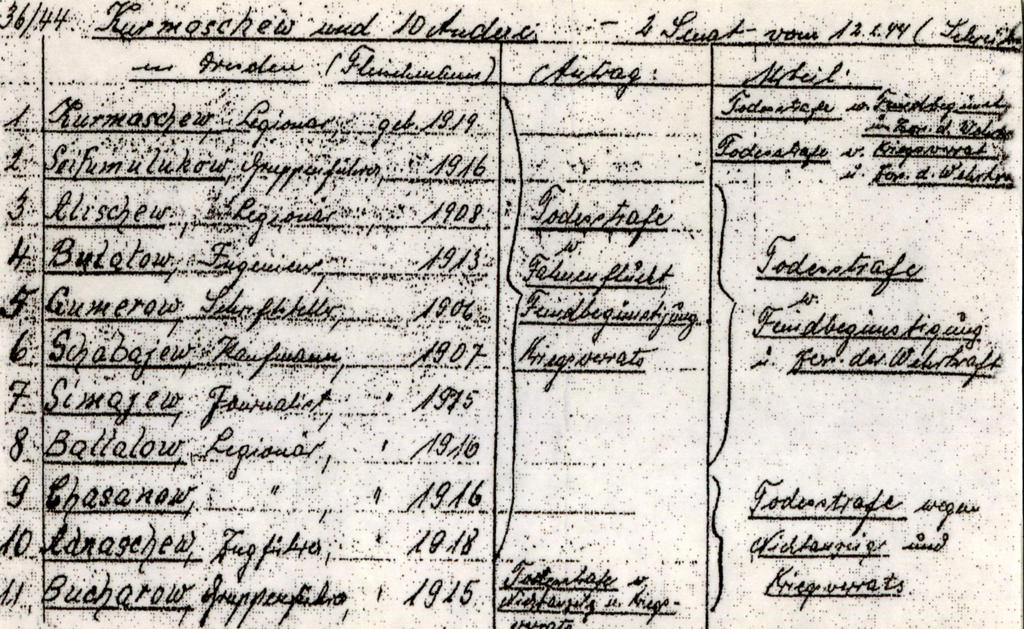 36/44 Kurmaschew und 10 Andere. – 2 Senat vom 12.2.44 (
in Dresden ( Antrag: Urteil:
1 Kurmaschew, Legionär, geb. 1919 Todesstrafe w. Feindbegünst.
u. Zers. d. Wehrkr.
2 Seifumulukow, Gruppenführer, " 1916 Todesstrafe w. Kriegsverrat
u. Zers. d. Wehrkr.
3 Alischew, Legionär " 1908 Todesstrafe
4 Bulatow, Ingenieur, 1913 w. Fahnenflucht Todesstrafe
5 Gumerow, Schriftsteller, 1906 Feindbegünstigung w. Feindbegünstigung
6 Schabajew, Kaufmann, 1907 Kriegsverrats u. Zers. der Wehrkraft
7 Simajew, Journalist, "
8 Battalow, Legionär, " 1916
9 Chasanow, " " 1916 Todesstrafe wegen
10 Adnaschew, Zugführer, " 1918 Nichtanzeige und
11 Bucharow, Gruppenführer, " 1915 Todesstrafe w. Kriegsverrats
Nichtanzeig u. Kriegs-
verrats